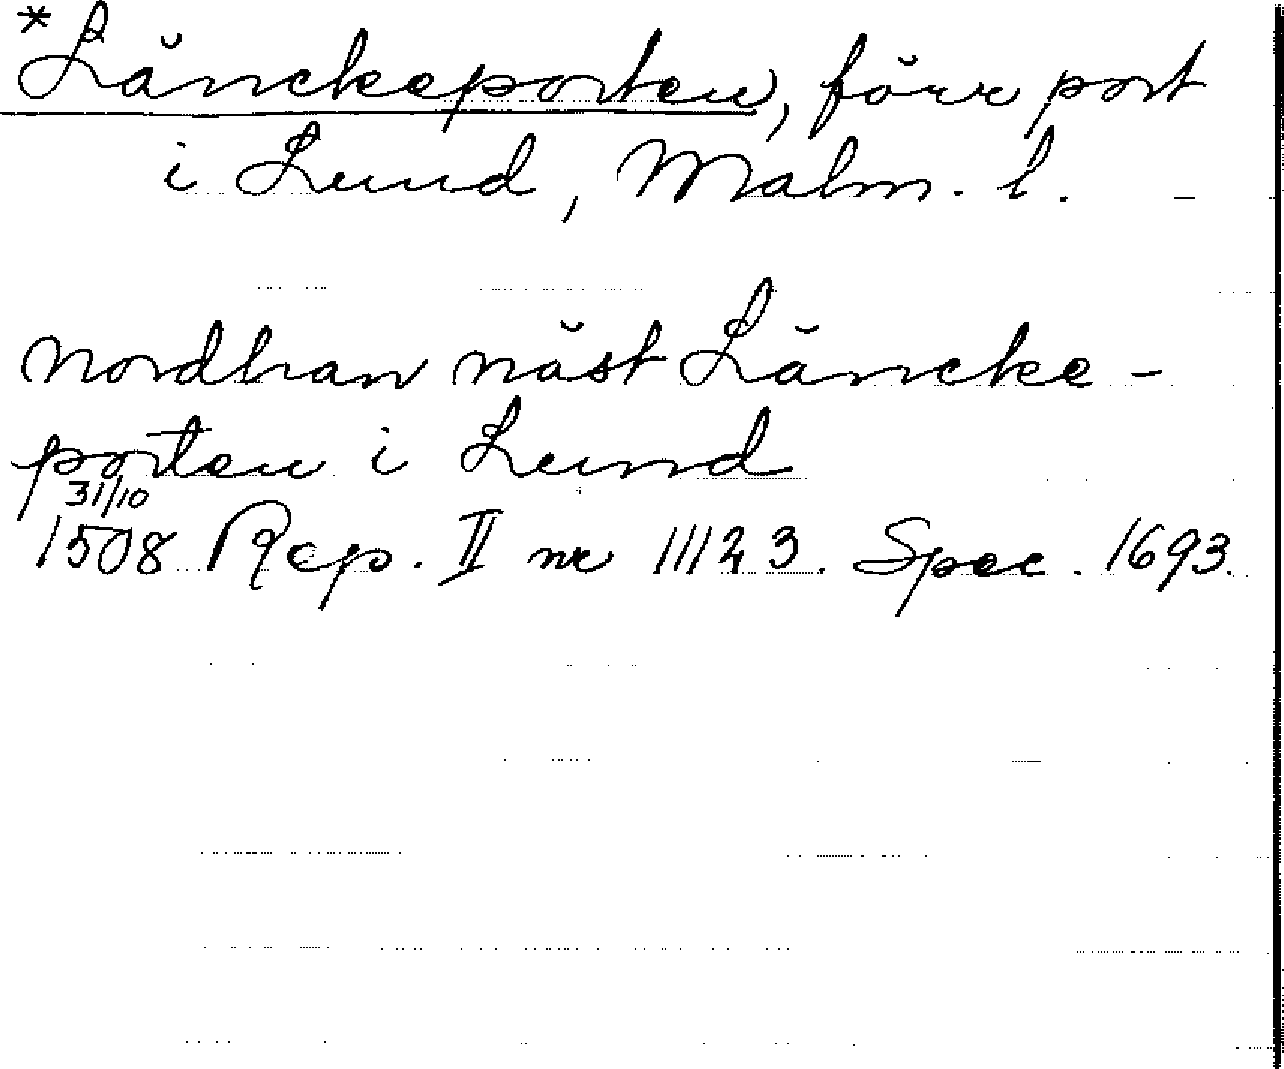 *Länckeporten, förr port
i Lund, Malm. l.
nordhan näst Läncke-
porten i Lund
31/10
1508 Rep. II nr 11123. Spec. 1693.